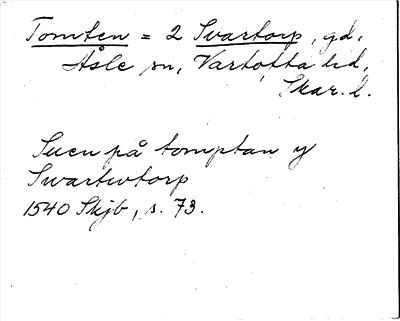 Tomten = 2 Svartorp, gd.
Åsle sn, Vartofta hd,
Skar. l.
Suen på tomptan y
Swartwtorp
1540 Skjb, s. 73.